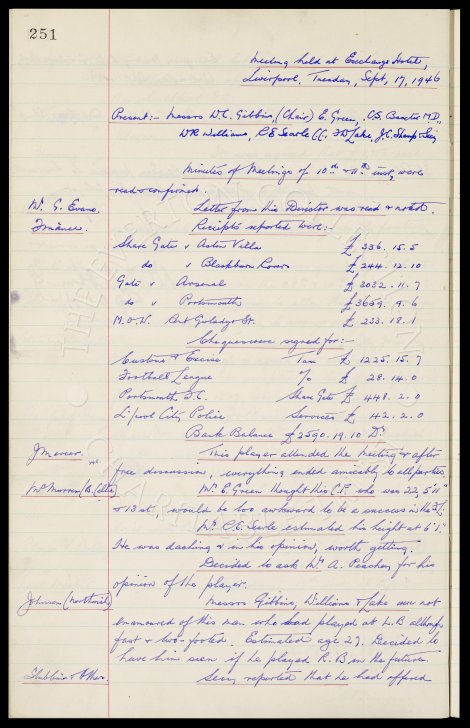 251
Meeting held at Exchange Hotel,
Liverpool, Tuesday, Sept, 17, 1946
Present:- Messrs W.C. Gibbins, (Chair) E. Green, C.S. Baxter M.D.,
W.R. Williams, R.E. Searle C.C. F.W. Lake, J.C. Sharp &
Minutes of Meetings of 10th & 11th inst, were
read & confirmed.
Mr. G. Evans. Letter from this Director was read & noted.
Finances. Receipts reported were:-
Share Gate v Aston Villa £ 336. 15. 5
do v Blackburn Rovers £ 244. 12. 10
Gate v Arsenal £ 3032. 11. 7
do v Portsmouth £ 3659. 9. 6
M.O.W. Rent Gwladys St. £ 233. 18. 1
Cheques were signed for:-
Customs & Excise Tax £ 1225. 15. 7
Football League % £ 28. 14. 0
Portsmouth F.C. Share Gate £ 448. 2. 0
L'pool City Police Services £ 42. 2. 0
Bank Balance £ 2590. 19. 10 Dr.
J Mercer. This player attended the Meeting & after
free discussion, everything ended amicably to all parties.
(B. Celtic) Mr. E. Green thought this C.F. who was 22, 5'11"
& 13 st. would be too awkward to be a success in the
Mr. R.E. Searle estimated his height at 6'1."
He was dashing & in his opinion, worth getting.
Decided to ask Mr A. Peachey for his
opinion of the player.
Johnson (Northwich) Messrs Gibbins, Williams & Lake were not
enamoured of this man who had played at L.B although
fast & two-footed. Estimated age 27. Decided to
have him seen if he played R.B in the future.
Stubbins & Other. Secy reported that he had offered